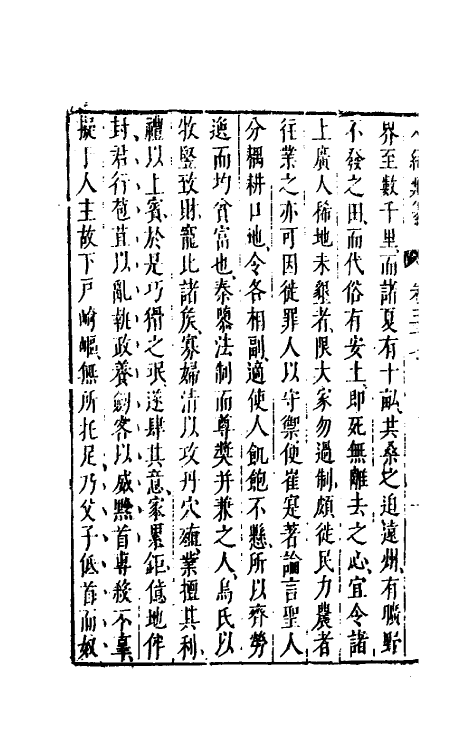 界至數千里而諸夏有十畝共桑之迫遠州有曠野
不發之田而代俗有安土即死無離去之心宜令諸
上廣人稀地未墾者限大家勿過制頗徙民力農者
往業之亦可因徙罪人以守禦使崔寔著論言聖人
分耦耕口地令各相副適使人飢飽不懸所以齊勞
逸而均貧富也秦隳法制而尊獎并兼之人烏氏以
牧豎致財寵比諸矦寡婦清以攻丹穴殖業擅其利
禮以上賓於是巧猾之氓遂肆其意家累鉅億地侔
封君行苞苴以亂執政養劒客以威黔首專殺不辜
擬于人主故下戶崎嶇無所托足乃父子低首而奴